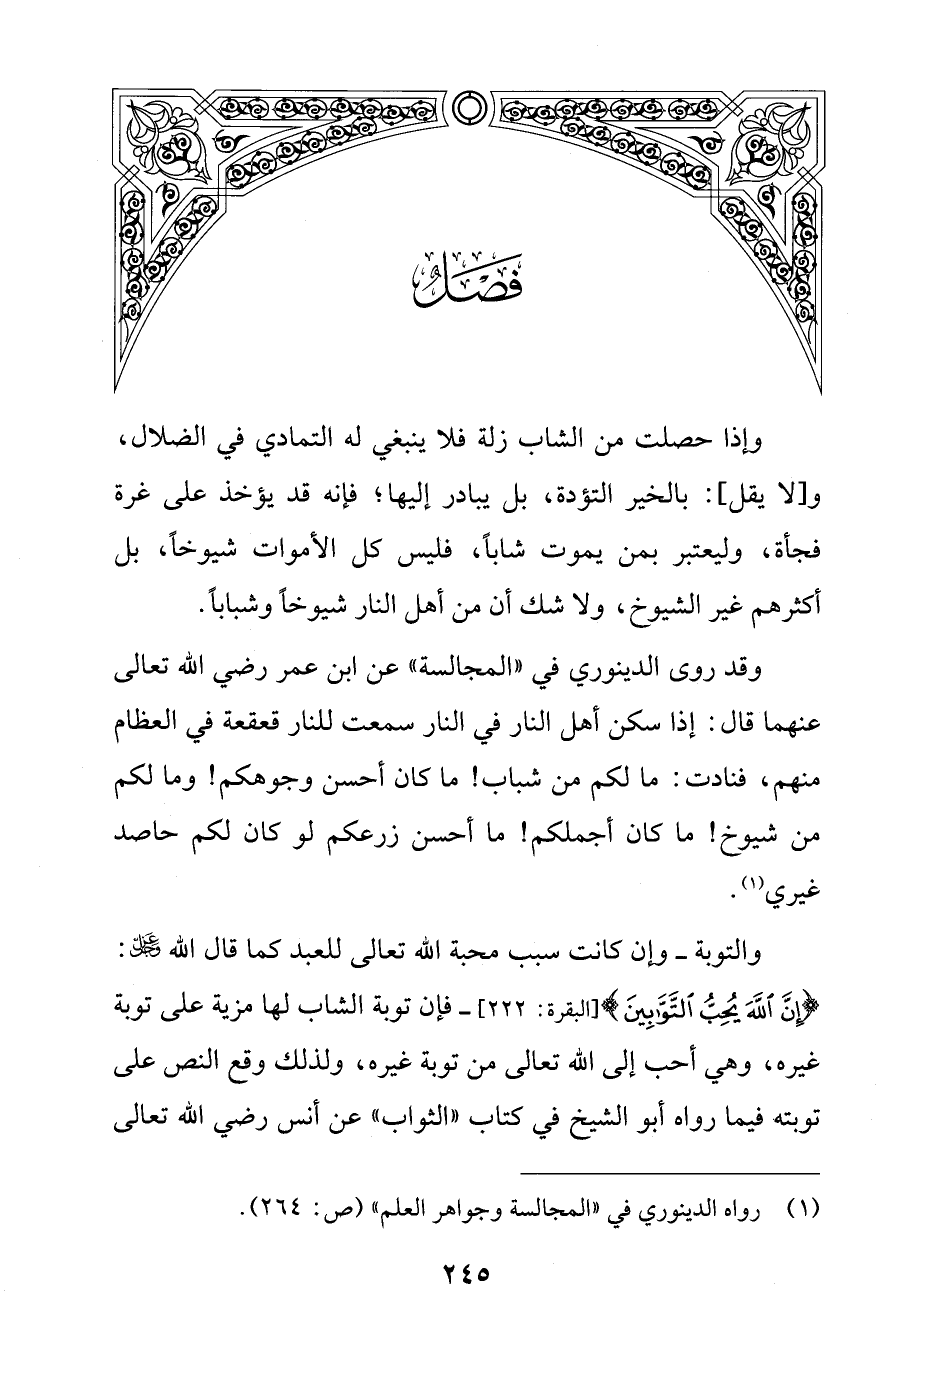 فَصْلٌ
وإذا حصلت من الشاب زلة فلا ينبغي له التمادي في الضلال،
و[لا يقل]: بالخير التؤدة، بل يبادر إليها؛ فإنه قد يؤخذ على غرة
فجأة، وليعتبر بمن يموت شاباً، فليس كل الأموات شيوخاً، بل
أكثرهم غير الشيوخ، ولا شك أن من أهل النار شيوخاً وشباباً.
وقد روى الدينوري في «المجالسة» عن ابن عمر رضي الله تعالى
عنهما قال: إذا سكن أهل النار في النار سمعت للنار قعقعة في العظام
منهم، فنادت: ما لكم من شباب! ما كان أحسن وجوهكم! وما لكم
من شيوخ! ما كان أجملكم! ما أحسن زرعكم لو كان لكم حاصد
غيري(١).
والتوبة ـ وإن كانت سبب محبة الله تعالى للعبد كما قال الله ﷿:
﴿إِنَّ ٱللَّهَ يُحِبُّ ٱلتَّوَّٰبِينَ﴾[البقرة: ٢٢٢] ـ فإن توبة الشاب لها مزية على توبة
غيره، وهي أحب إلى الله تعالى من توبة غيره، ولذلك وقع النص على
توبته فيما رواه أبو الشيخ في كتاب «الثواب» عن أنس رضي الله تعالى
(١) رواه الدينوري في «المجالسة وجواهر العلم» (ص: ٢٦٤).
٢٤٥